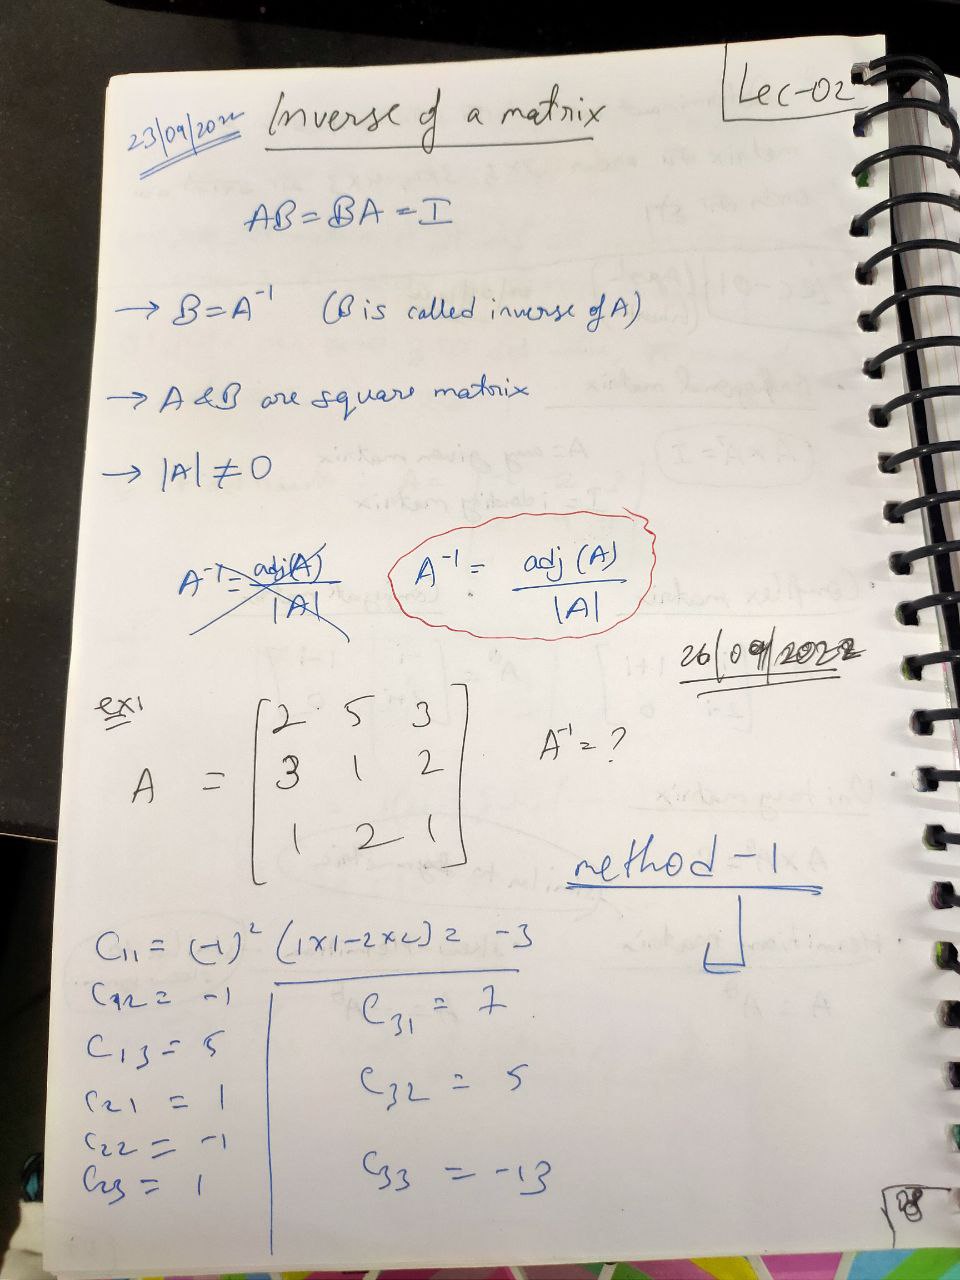 Lec-02
23/09/2022 Inverse of a matrix
AB = BA = I
→ B = A⁻¹ (B is called inverse of A)
→ A & B are square matrix
→ |A| ≠ 0
A⁻¹ = adj(A) / |A|
A⁻¹ = adj (A) / |A|
26/09/2022
ex1
A = [2 5 3
3 1 2
1 2 1]
A⁻¹ = ?
method - 1
C₁₁ = (-1)² (1×1-2×2) = -3
C₁₂ = -1
C₁₃ = 5
C₂₁ = 1
C₂₂ = -1
C₂₃ = 1
C₃₁ = 7
C₃₂ = 5
C₃₃ = -13